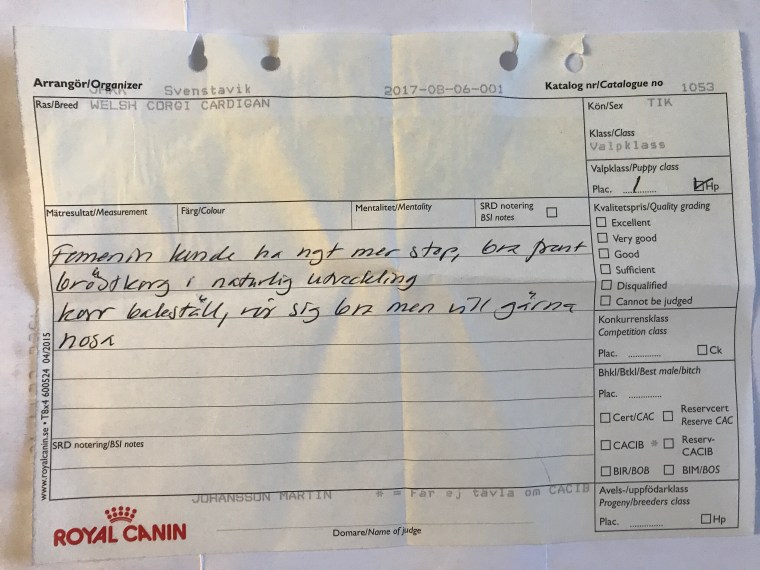 Arrangör/Organizer Svenstavik 2017-08-06-001 Katalog nr/Catalogue no 1053
Ras/Breed WELSH CORGI CARDIGAN
Kön/Sex TIK
Klass/Class
Valpklass
Valpklass/Puppy class
Plac. ....1........ Hp
Mätresultat/Measurement Färg/Colour Mentalitet/Mentality SRD notering
BSI notes
Kvalitetspris/Quality grading
Excellent
Very good
Good
Sufficient
Disqualified
Cannot be judged
Femenin kunde ha ngt mer stop, bra front
bröstkorg i naturlig utveckling
korr bakställ, rör sig bra men vill gärna
nosa
Konkurrensklass
Competition class
Plac. ............. Ck
Bhkl/Btkl/Best male/bitch
Plac. .............
Cert/CAC Reservcert
Reserve CAC
CACIB * Reserv-
CACIB
BIR/BOB BIM/BOS
SRD notering/BSI notes
www.royalcanin.se • TBx4 600524 04/2015
JOHANSSON MARTIN * = Får ej tävla om CACIB
Avels-/uppfödarklass
Progeny/breeders class
Plac. ............. Hp
ROYAL CANIN
Domare/Name of judge